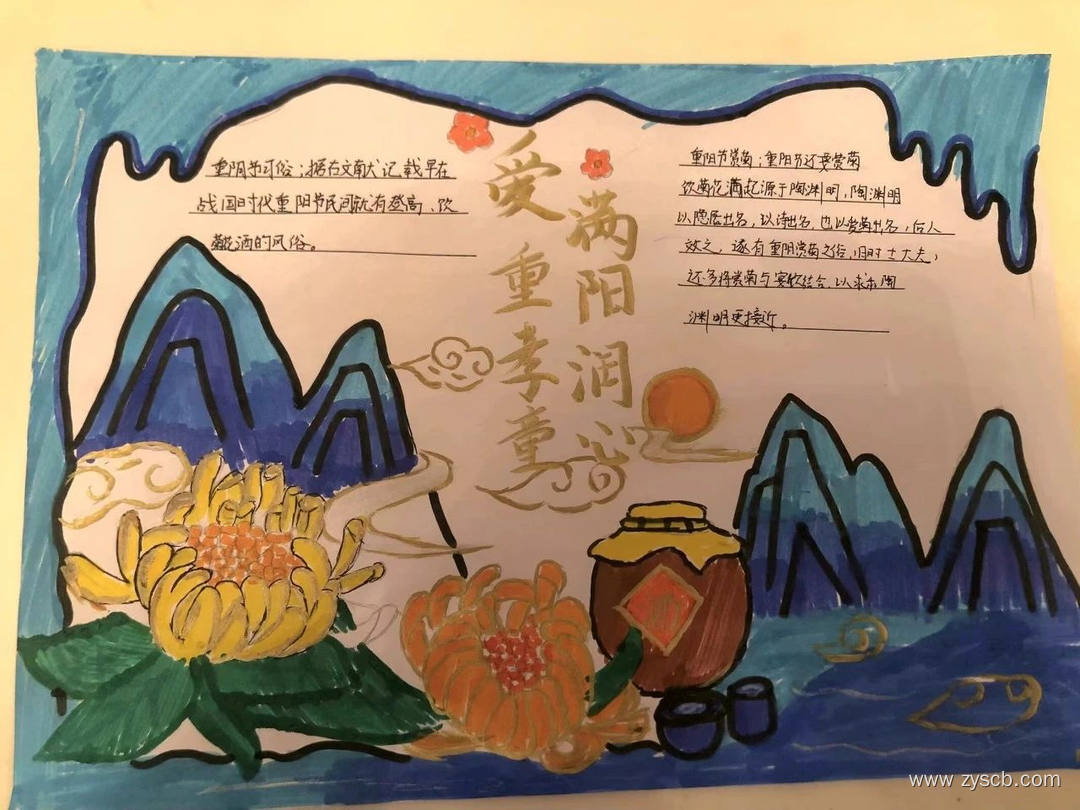 重阴节习俗：据古文献记载早在
战国时代重阳节民间就有登高、饮
菊花酒的风俗。
爱重孝童
满阳润心
重阳节赏菊：重阳节还要赏菊
饮菊花酒起源于陶渊明，陶渊明
以隐居出名，以诗出名，也以爱菊出名，后人
效之，遂有重阴赏菊之俗，旧时士大夫，
还多将赏菊与宴饮结合，以求和陶
渊明更接近。
酒
www.zyscb.com